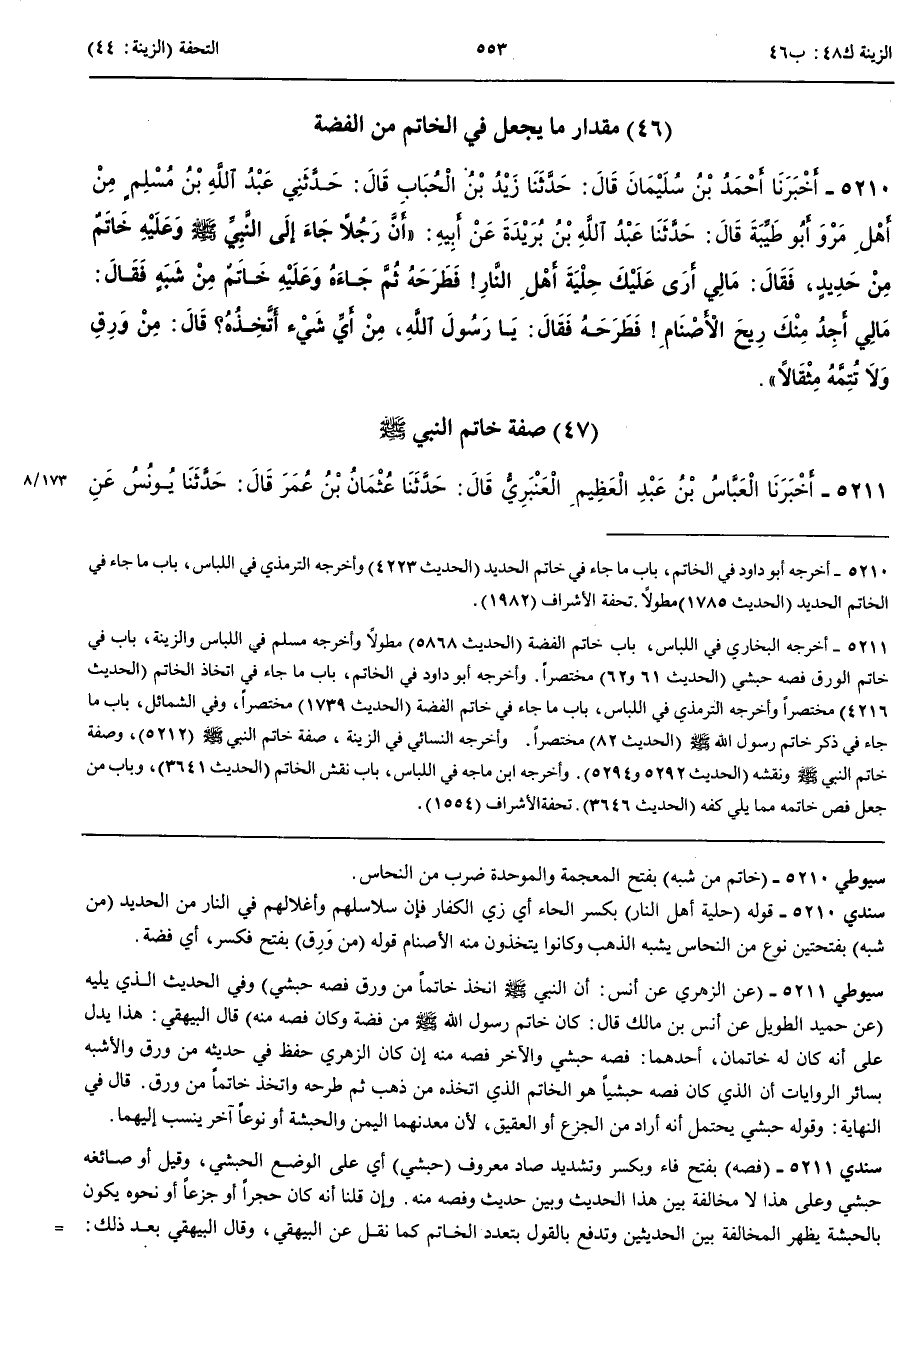 الزينة ك٤٨: ب٤٦ ٥٥٣ التحفة (الزينة: ٤٤)
(٤٦) مقدار ما يجعل في الخاتم من الفضة
٥٢١٠ - أَخْبَرَنَا أَحْمَدُ بْنُ سُلَيْمَانَ قَالَ: حَدَّثَنَا زَيْدُ بْنُ الْحُبَابِ قَالَ: حَدَّثَنِي عَبْدُ اللَّهِ بْنُ مُسْلِمٍ مِنْ
أَهْلِ مَرْوَ أَبُو طَيْبَةَ قَالَ: حَدَّثَنَا عَبْدُ اللَّهِ بْنُ بُرَيْدَةَ عَنْ أَبِيهِ: «أَنَّ رَجُلًا جَاءَ إِلَى النَّبِيِّ ﷺ وَعَلَيْهِ خَاتَمٌ
مِنْ حَدِيدٍ، فَقَالَ: مَالِي أَرَى عَلَيْكَ حِلْيَةَ أَهْلِ النَّارِ! فَطَرَحَهُ ثُمَّ جَاءَهُ وَعَلَيْهِ خَاتَمٌ مِنْ شَبَهٍ فَقَالَ:
مَالِي أَجِدُ مِنْكَ رِيحَ الْأَصْنَامِ! فَطَرَحَهُ فَقَالَ: يَا رَسُولَ اللَّهِ، مِنْ أَيِّ شَيْءٍ أَتَّخِذُهُ؟ قَالَ: مِنْ وَرِقٍ
وَلَا تُتِمَّهُ مِثْقَالًا».
(٤٧) صفة خاتم النبي ﷺ
٥٢١١ - أَخْبَرَنَا الْعَبَّاسُ بْنُ عَبْدِ الْعَظِيمِ الْعَنْبَرِيُّ قَالَ: حَدَّثَنَا عُثْمَانُ بْنُ عُمَرَ قَالَ: حَدَّثَنَا يُونُسُ عَنِ ٨/١٧٣
٥٢١٠ - أخرجه أبو داود في الخاتم، باب ما جاء في خاتم الحديد (الحديث ٤٢٢٣) وأخرجه الترمذي في اللباس، باب ما جاء في
الخاتم الحديد (الحديث ١٧٨٥) مطولًا. تحفة الأشراف (١٩٨٢).
٥٢١١ - أخرجه البخاري في اللباس، باب خاتم الفضة (الحديث ٥٨٦٨) مطولًا وأخرجه مسلم في اللباس والزينة، باب في
خاتم الورق فصه حبشي (الحديث ٦١ و٦٢) مختصراً. وأخرجه أبو داود في الخاتم، باب ما جاء في اتخاذ الخاتم (الحديث
٤٢١٦) مختصراً وأخرجه الترمذي في اللباس، باب ما جاء في خاتم الفضة (الحديث ١٧٣٩) مختصراً، وفي الشمائل، باب ما
جاء في ذكر خاتم رسول الله ﷺ (الحديث ٨٢) مختصراً. وأخرجه النسائي في الزينة، صفة خاتم النبي ﷺ (٥٢١٢)، وصفة
خاتم النبي ﷺ ونقشه (الحديث ٥٢٩٢ و٥٢٩٤). وأخرجه ابن ماجه في اللباس، باب نقش الخاتم (الحديث ٣٦٤١)، وباب من
جعل فص خاتمه مما يلي كفه (الحديث ٣٦٤٦). تحفة الأشراف (١٥٥٤).
سيوطي ٥٢١٠ - (خاتم من شبه) بفتح المعجمة والموحدة ضرب من النحاس.
سندي ٥٢١٠ - قوله (حلية أهل النار) بكسر الحاء أي زي الكفار فإن سلاسلهم وأغلالهم في النار من الحديد (من
شبه) بفتحتين نوع من النحاس يشبه الذهب وكانوا يتخذون منه الأصنام قوله (من وَرِق) بفتح فكسر، أي فضة.
سيوطي ٥٢١١ - (عن الزهري عن أنس: أن النبي ﷺ اتخذ خاتماً من ورق فصه حبشي) وفي الحديث الذي يليه
(عن حميد الطويل عن أنس بن مالك قال: كان خاتم رسول الله ﷺ من فضة وكان فصه منه) قال البيهقي: هذا يدل
على أنه كان له خاتمان، أحدهما: فصه حبشي والآخر فصه منه إن كان الزهري حفظ في حديثه من ورق والأشبه
بسائر الروايات أن الذي كان فصه حبشياً هو الخاتم الذي اتخذه من ذهب ثم طرحه واتخذ خاتماً من ورق. قال في
النهاية: وقوله حبشي يحتمل أنه أراد من الجزع أو العقيق، لأن معدنهما اليمن والحبشة أو نوعاً آخر ينسب إليهما.
سندي ٥٢١١ - (فصه) بفتح فاء وبكسر وتشديد صاد معروف (حبشي) أي على الوضع الحبشي، وقيل أو صائغه
حبشي وعلى هذا لا مخالفة بين هذا الحديث وبين حديث وفصه منه. وإن قلنا أنه كان حجراً أو جزعاً أو نحوه يكون
بالحبشة يظهر المخالفة بين الحديثين وتدفع بالقول بتعدد الخاتم كما نقل عن البيهقي، وقال البيهقي بعد ذلك: =